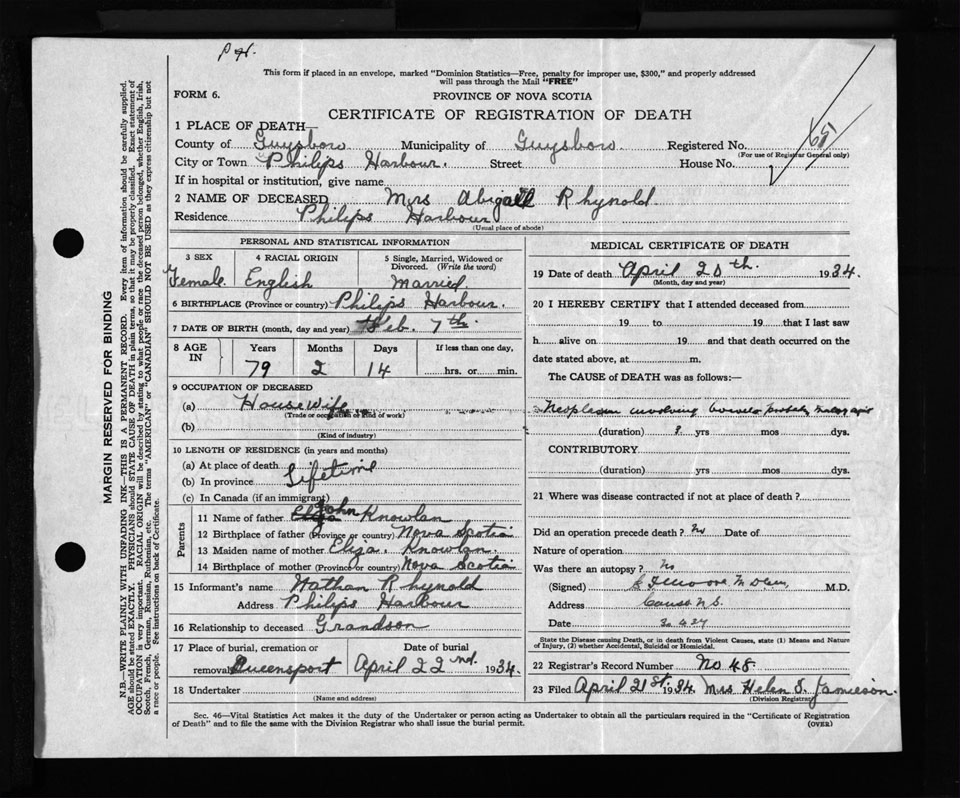 P H.
This form if placed in an envelope, marked "Dominion Statistics—Free, penalty for improper use, $300," and properly addressed
will pass through the Mail "FREE"
FORM 6.
PROVINCE OF NOVA SCOTIA
CERTIFICATE OF REGISTRATION OF DEATH
1 PLACE OF DEATH—
County of Guysboro Municipality of Guysboro. Registered No.
(For use of Registrar General only)
City or Town Philips Harbour. Street House No.
If in hospital or institution, give name
2 NAME OF DECEASED Mrs Abigail Rhynold
Residence Philips Harbour
(Usual place of abode)
PERSONAL AND STATISTICAL INFORMATION
3 SEX 4 RACIAL ORIGIN 5 Single, Married, Widowed or Divorced. (Write the word)
Female. English Married.
6 BIRTHPLACE (Province or country) Philips Harbour.
7 DATE OF BIRTH (month, day and year) Feb. 7th.
8 AGE IN Years Months Days If less than one day,
79 2 14 hrs. or min.
9 OCCUPATION OF DECEASED
(a) House Wife
(Trade or occupation or kind of work)
(b)
(Kind of industry)
10 LENGTH OF RESIDENCE (in years and months)
(a) At place of death
(b) In province Lifetime
(c) In Canada (if an immigrant)
Parents
11 Name of father John Knowlan
12 Birthplace of father (Province or country) Nova Scotia
13 Maiden name of mother Eliza. Knowlan.
14 Birthplace of mother (Province or country) Nova Scotia
15 Informant's name Nathan Rhynold
Address Philips Harbour
16 Relationship to deceased Grandson
17 Place of burial, cremation or removal Date of burial
Queensport April 22nd. 1934.
18 Undertaker
(Name and address)
MEDICAL CERTIFICATE OF DEATH
19 Date of death April 20th. 1934.
(Month, day and year)
20 I HEREBY CERTIFY that I attended deceased from
19 to 19 that I last saw
h alive on 19 and that death occurred on the
date stated above, at m.
The CAUSE of DEATH was as follows:—
Neoplasm involving
(duration) ? yrs mos dys.
CONTRIBUTORY
(duration) yrs mos dys.
21 Where was disease contracted if not at place of death?
Did an operation precede death? No Date of
Nature of operation
Was there an autopsy? No
(Signed) M.D.
Address Canso N.S.
Date
State the Disease causing Death, or in death from Violent Causes, state (1) Means and Nature
of Injury, (2) whether Accidental, Suicidal or Homicidal.
22 Registrar's Record Number No 48.
23 Filed April 21st. 1934 Mrs Helen S. Jamieson.
(Division Registrar)
Sec. 46—Vital Statistics Act makes it the duty of the Undertaker or person acting as Undertaker to obtain all the particulars required in the "Certificate of Registration
of Death" and to file the same with the Division Registrar who shall issue the burial permit. (OVER)
MARGIN RESERVED FOR BINDING
N.B.—WRITE PLAINLY WITH UNFADING INK—THIS IS A PERMANENT RECORD. Every item of information should be carefully supplied.
AGE should be stated EXACTLY. PHYSICIANS should STATE CAUSE OF DEATH in plain terms, so that it may be properly classified. Exact statement of
OCCUPATION is very important. RACIAL ORIGIN will be described by stating to what people or race the deceased person belonged, whether English, Irish,
Scotch, French, German, Russian, Ruthenian, etc. The terms "AMERICAN" or "CANADIAN" SHOULD NOT BE USED as they express citizenship but not
a race or people. See instructions on back of Certificate.